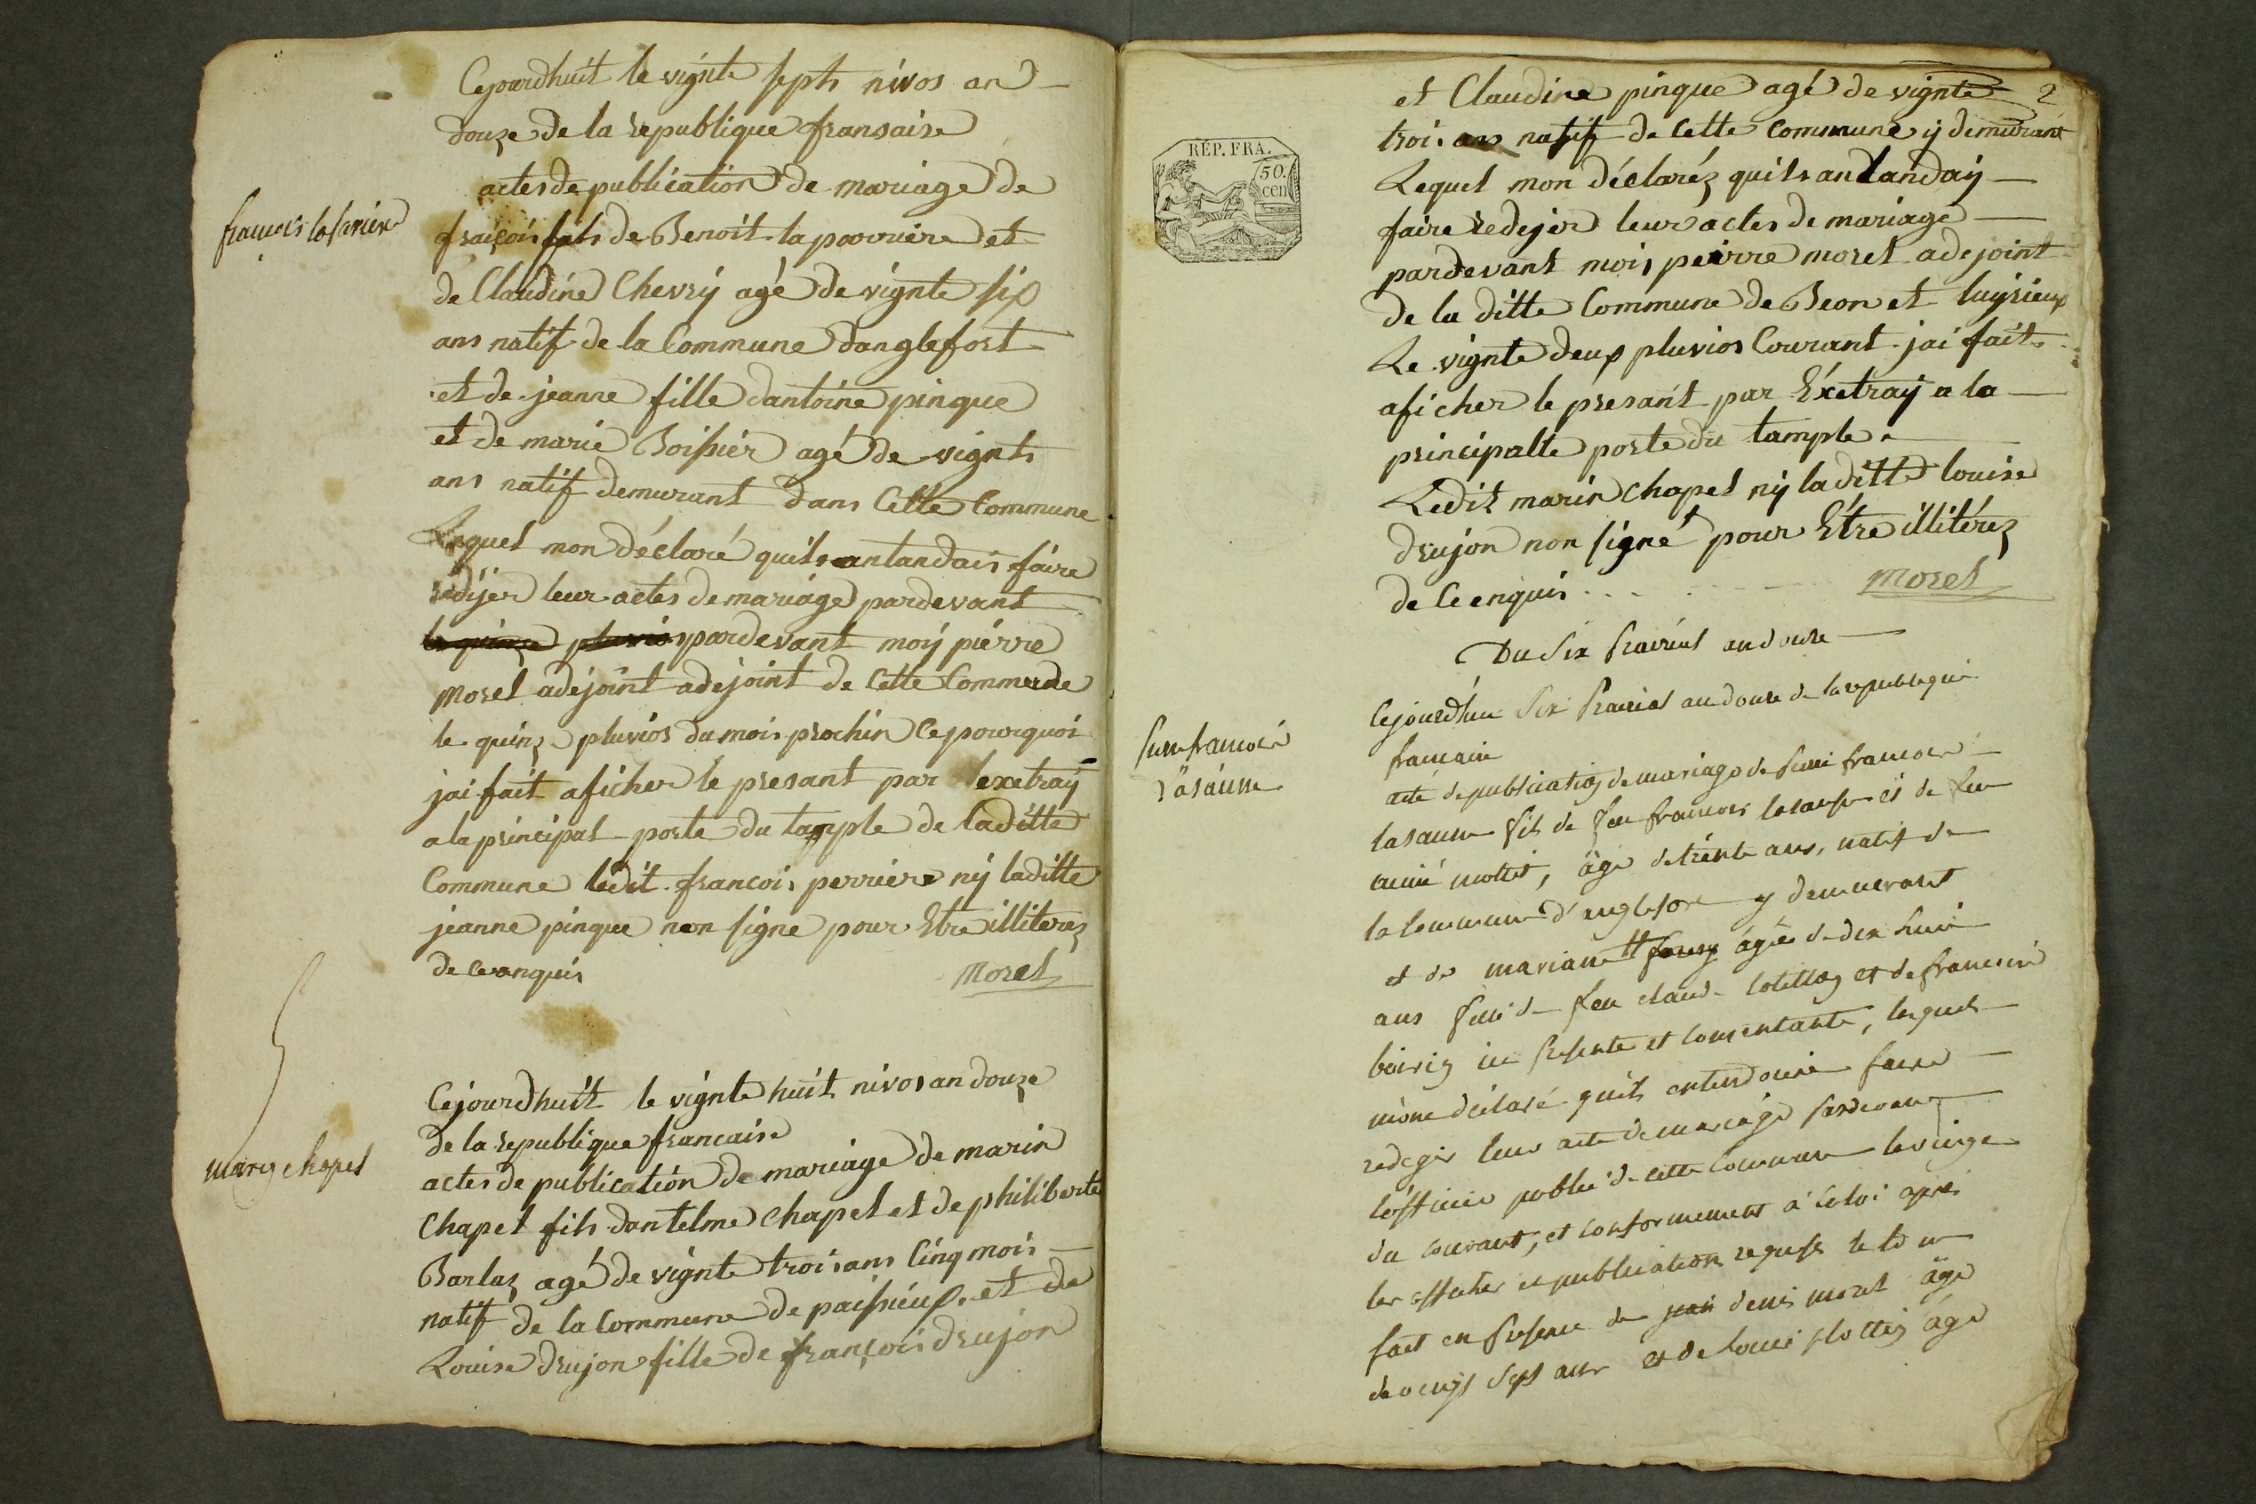 Cejourdhuit le vignte septs nivos an
douze de la republique fransaise
actes de publication de mariage de
fraiçois fils de Benoit la perriere et
francois laperiere
de Claudine Chevry agé de vignte six
ans natif de la Commune danglefort
et de jeanne fille dantoine pinque
et de marie Boissier agé de vignts
ans natif demurant dans Cette Commune
Lequel mon déclaré quils antandais faire
rédijer leur actes de mariage pardevant
le quinze pluvios pardevant moy piérre
Morel adejoint adejoint de Cette Commune
le quinz pluvios du mois prochin Ce pourquoi
jai fait aficher le presant par lexetray
a la principal porte du tample de laditte
Commune ledit francois perriere ny laditte
jeanne pinque non signe pour Etre illiterez
de ce anquis
Morel
Cejourdhuit le vignte huit nivos an douze
de la republique francaise
marin chapel
actes de publication de mariage de marin
Chapel fils dantelme Chapel et de philiberte
Barlaz agé de vignte trois ans Cinq mois
natif de la Commune de paissieux et de
Louise drujon fille de françois drujon
2
et Claudine pinque agé de vignte
trois ans natif de Cette Commune y demurant
RÉP. FRA.
50.
cen
Lequel mon déclaréz quils antanday
faire redejer leur actes de mariage
pardevant mois peirre morel adejoint
de la ditte Commune de Beon et luyrieux
Le vignte deux pluvios Courant jai fait
aficher le presant par Éxetray a la
principalle porte du tample
Ledit marin Chapel ny laditte louise
drujon non signé pour Etre illitéréz
de Ce enquis
Morel
Du Six prairial an douze
Cejourdhui Six prairial an douze de la republique
francaise
acte de publication de mariage de francois
lasausse fils de feu francois lasausse et de feu
mottet, âgé de trente ans, natif de
la Commune d'anglefort y demeurant
et de mariane âgée de dix huit
ans fille de feu claude et de francoise
ici presente et consentante, lesquels
m'ont déclaré quils entendoient faire
redeger leur acte de mariage pardevant
l'officier public de cette commune le
du courant, et conformement à la loi après
les affiches et publication requises le tout
fait en presence de denis morel âgé
de vingt sept ans et de louis âgé